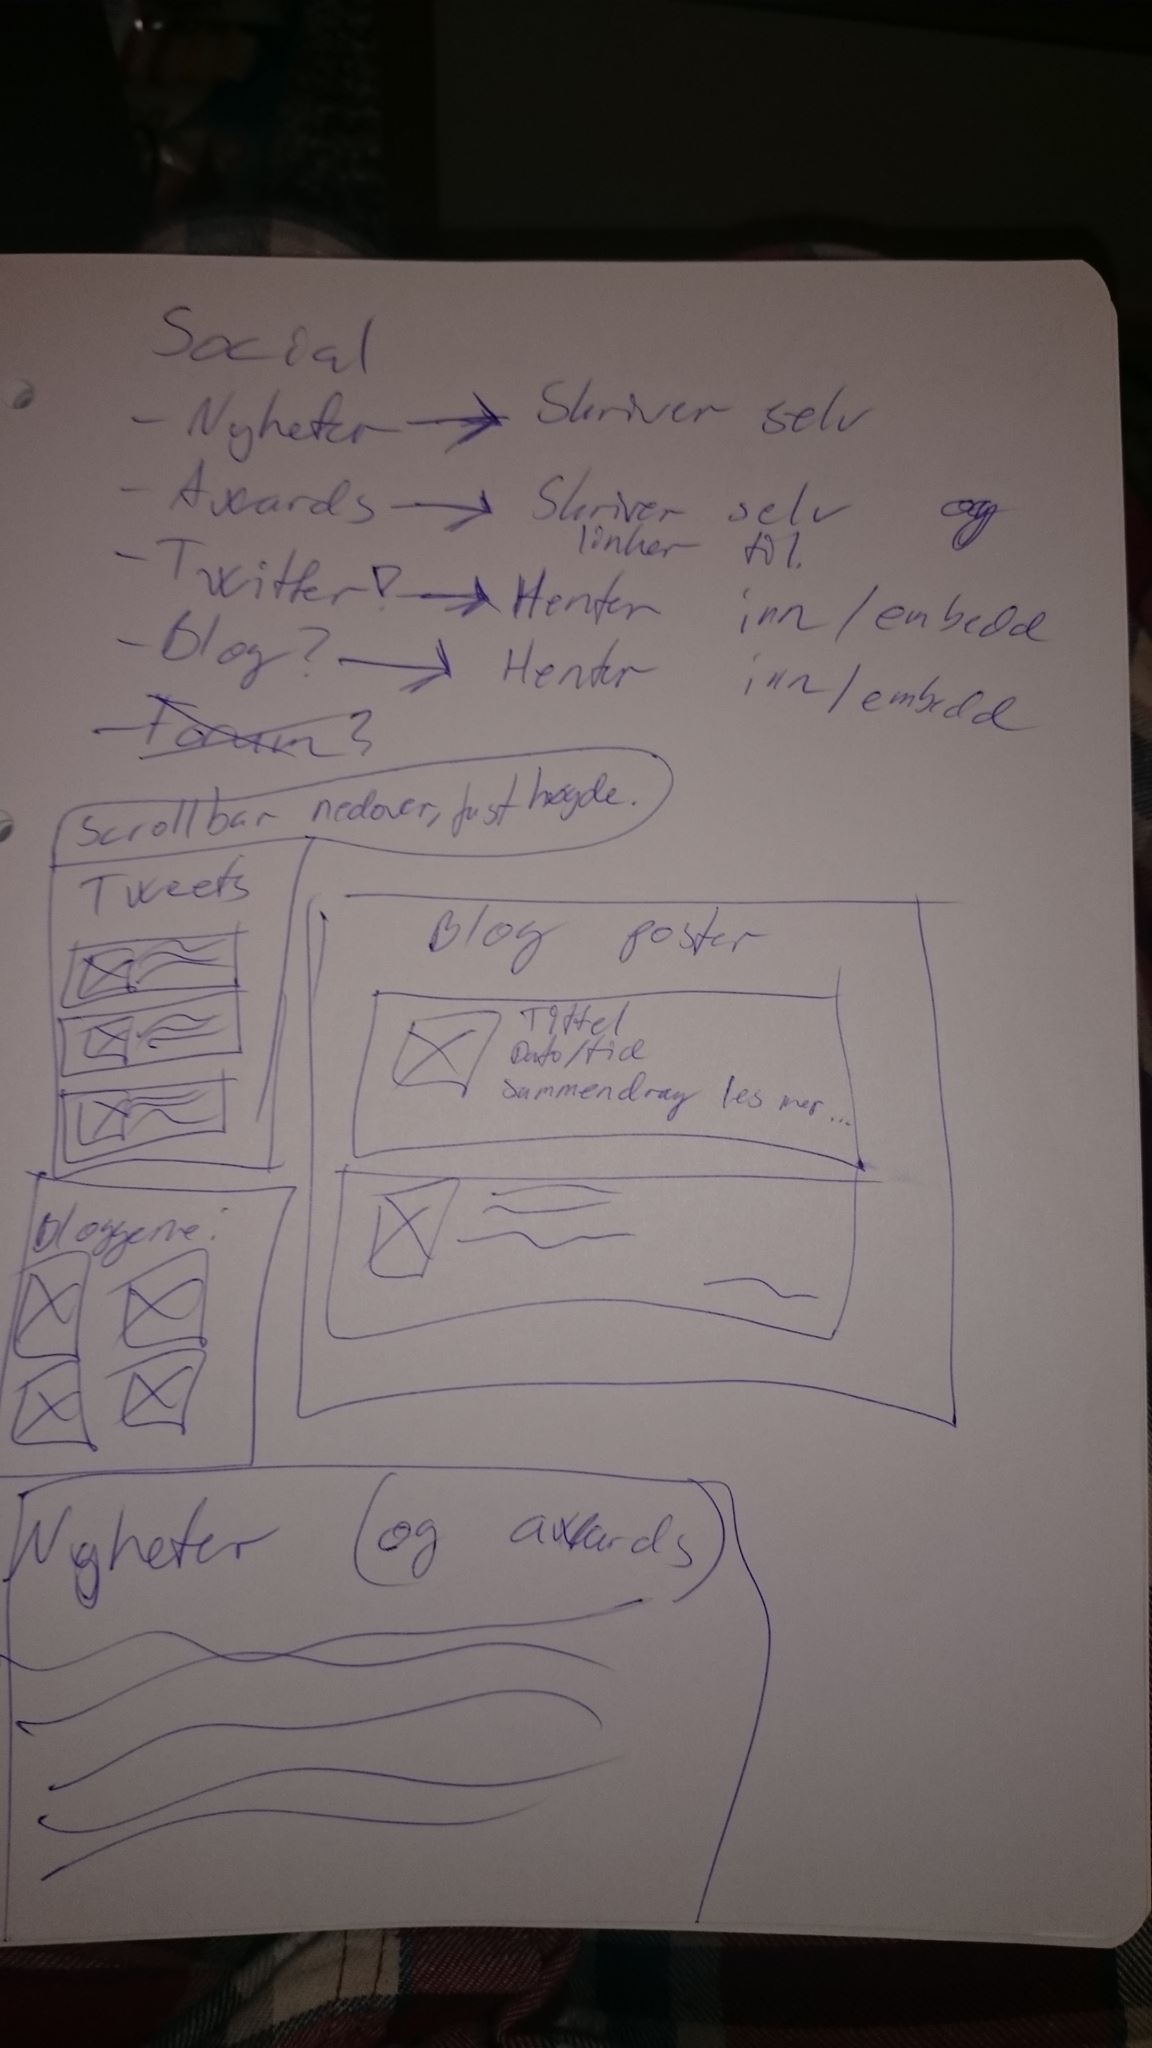 Social
- Nyheter → Skriver selv
- Awards → Skriver selv og
linker til.
- Twitter? → Henter inn/embedd
- Blog? → Henter inn/embedd
- Forum?
Scrollbar nedover, just høyde.
Tweets
Blog poster
Tittel
Dato/tid
Sammendrag les mer...
Bloggerne:
Nyheter (og awards)